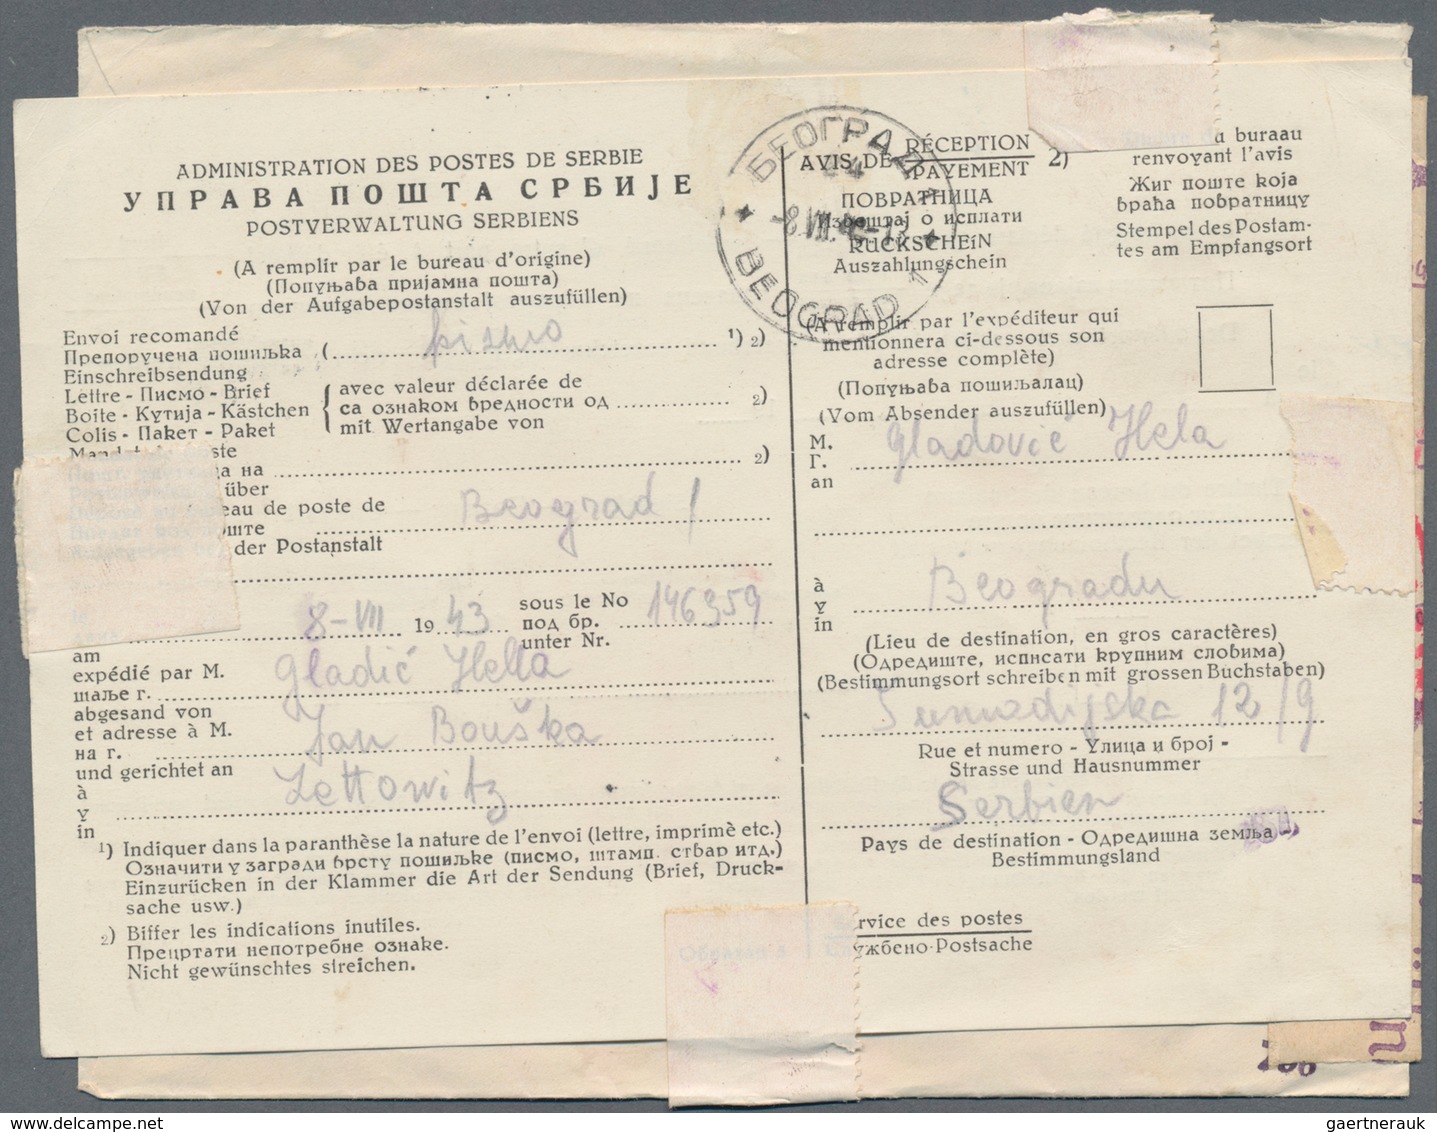 ADMINISTRATION DES POSTES DE SERBIE
УПРАВА ПОШТА СРБИЈЕ
POSTVERWALTUNG SERBIENS
(A remplir par le bureau d'origine)
(Попуњава пријамна пошта)
(Von der Aufgabepostanstalt auszufüllen)
Envoi recomandé
Препоручена пошиљка ( pismo 1) 2)
Einschreibsendung
Lettre - Писмо - Brief
Boite - Кутија - Kästchen
Colis - Пакет - Paket
avec valeur déclarée de
са ознаком вредности од 2)
mit Wertangabe von
ste
на 2)
über
eau de poste de
ште Beograd 1
der Postanstalt
8-VII 1943
sous le No
под бр. 146959
unter Nr.
am
expédié par M. Gladić Hella
шаље г.
abgesand von
et adresse à M. Jan Bouška
на г.
und gerichtet an
à Lettowitz
у
in
1) Indiquer dans la paranthèse la nature de l'envoi (lettre, imprimè etc.)
Означити у загради врсту пошиљке (писмо, штамп. ствар итд.)
Einzurücken in der Klammer die Art der Sendung (Brief, Druck-
sache usw.)
2) Biffer les indications inutiles.
Прецртати непотребне ознаке.
Nicht gewünschtes streichen.
БЕОГРАД
BEOGRAD 1
AVIS DE RÉCEPTION
PAYEMENT 2)
ПОВРАТНИЦА
Извештај о исплати
RÜCKSCHEIN
Auszahlungschein
buraau
renvoyant l'avis
Жиг поште која
враћа повратницу
Stempel des Postam-
tes am Empfangsort
(A remplir par l'expéditeur qui
mentionnera ci-dessous son
adresse complète)
(Попуњава пошиљалац)
(Vom Absender auszufüllen)
M. Gladović Hela
Г.
an
à Beogradu
у
in
(Lieu de destination, en gros caractères)
(Одредиште, исписати крупним словима)
(Bestimmungsort schreiben mit grossen Buchstaben)
12/9
Rue et numero - Улица и број -
Strasse und Hausnummer
Serbien
Pays de destination - Одредишна земља
Bestimmungsland
rvice des postes
ужбено-Postsache
gaertnerauk